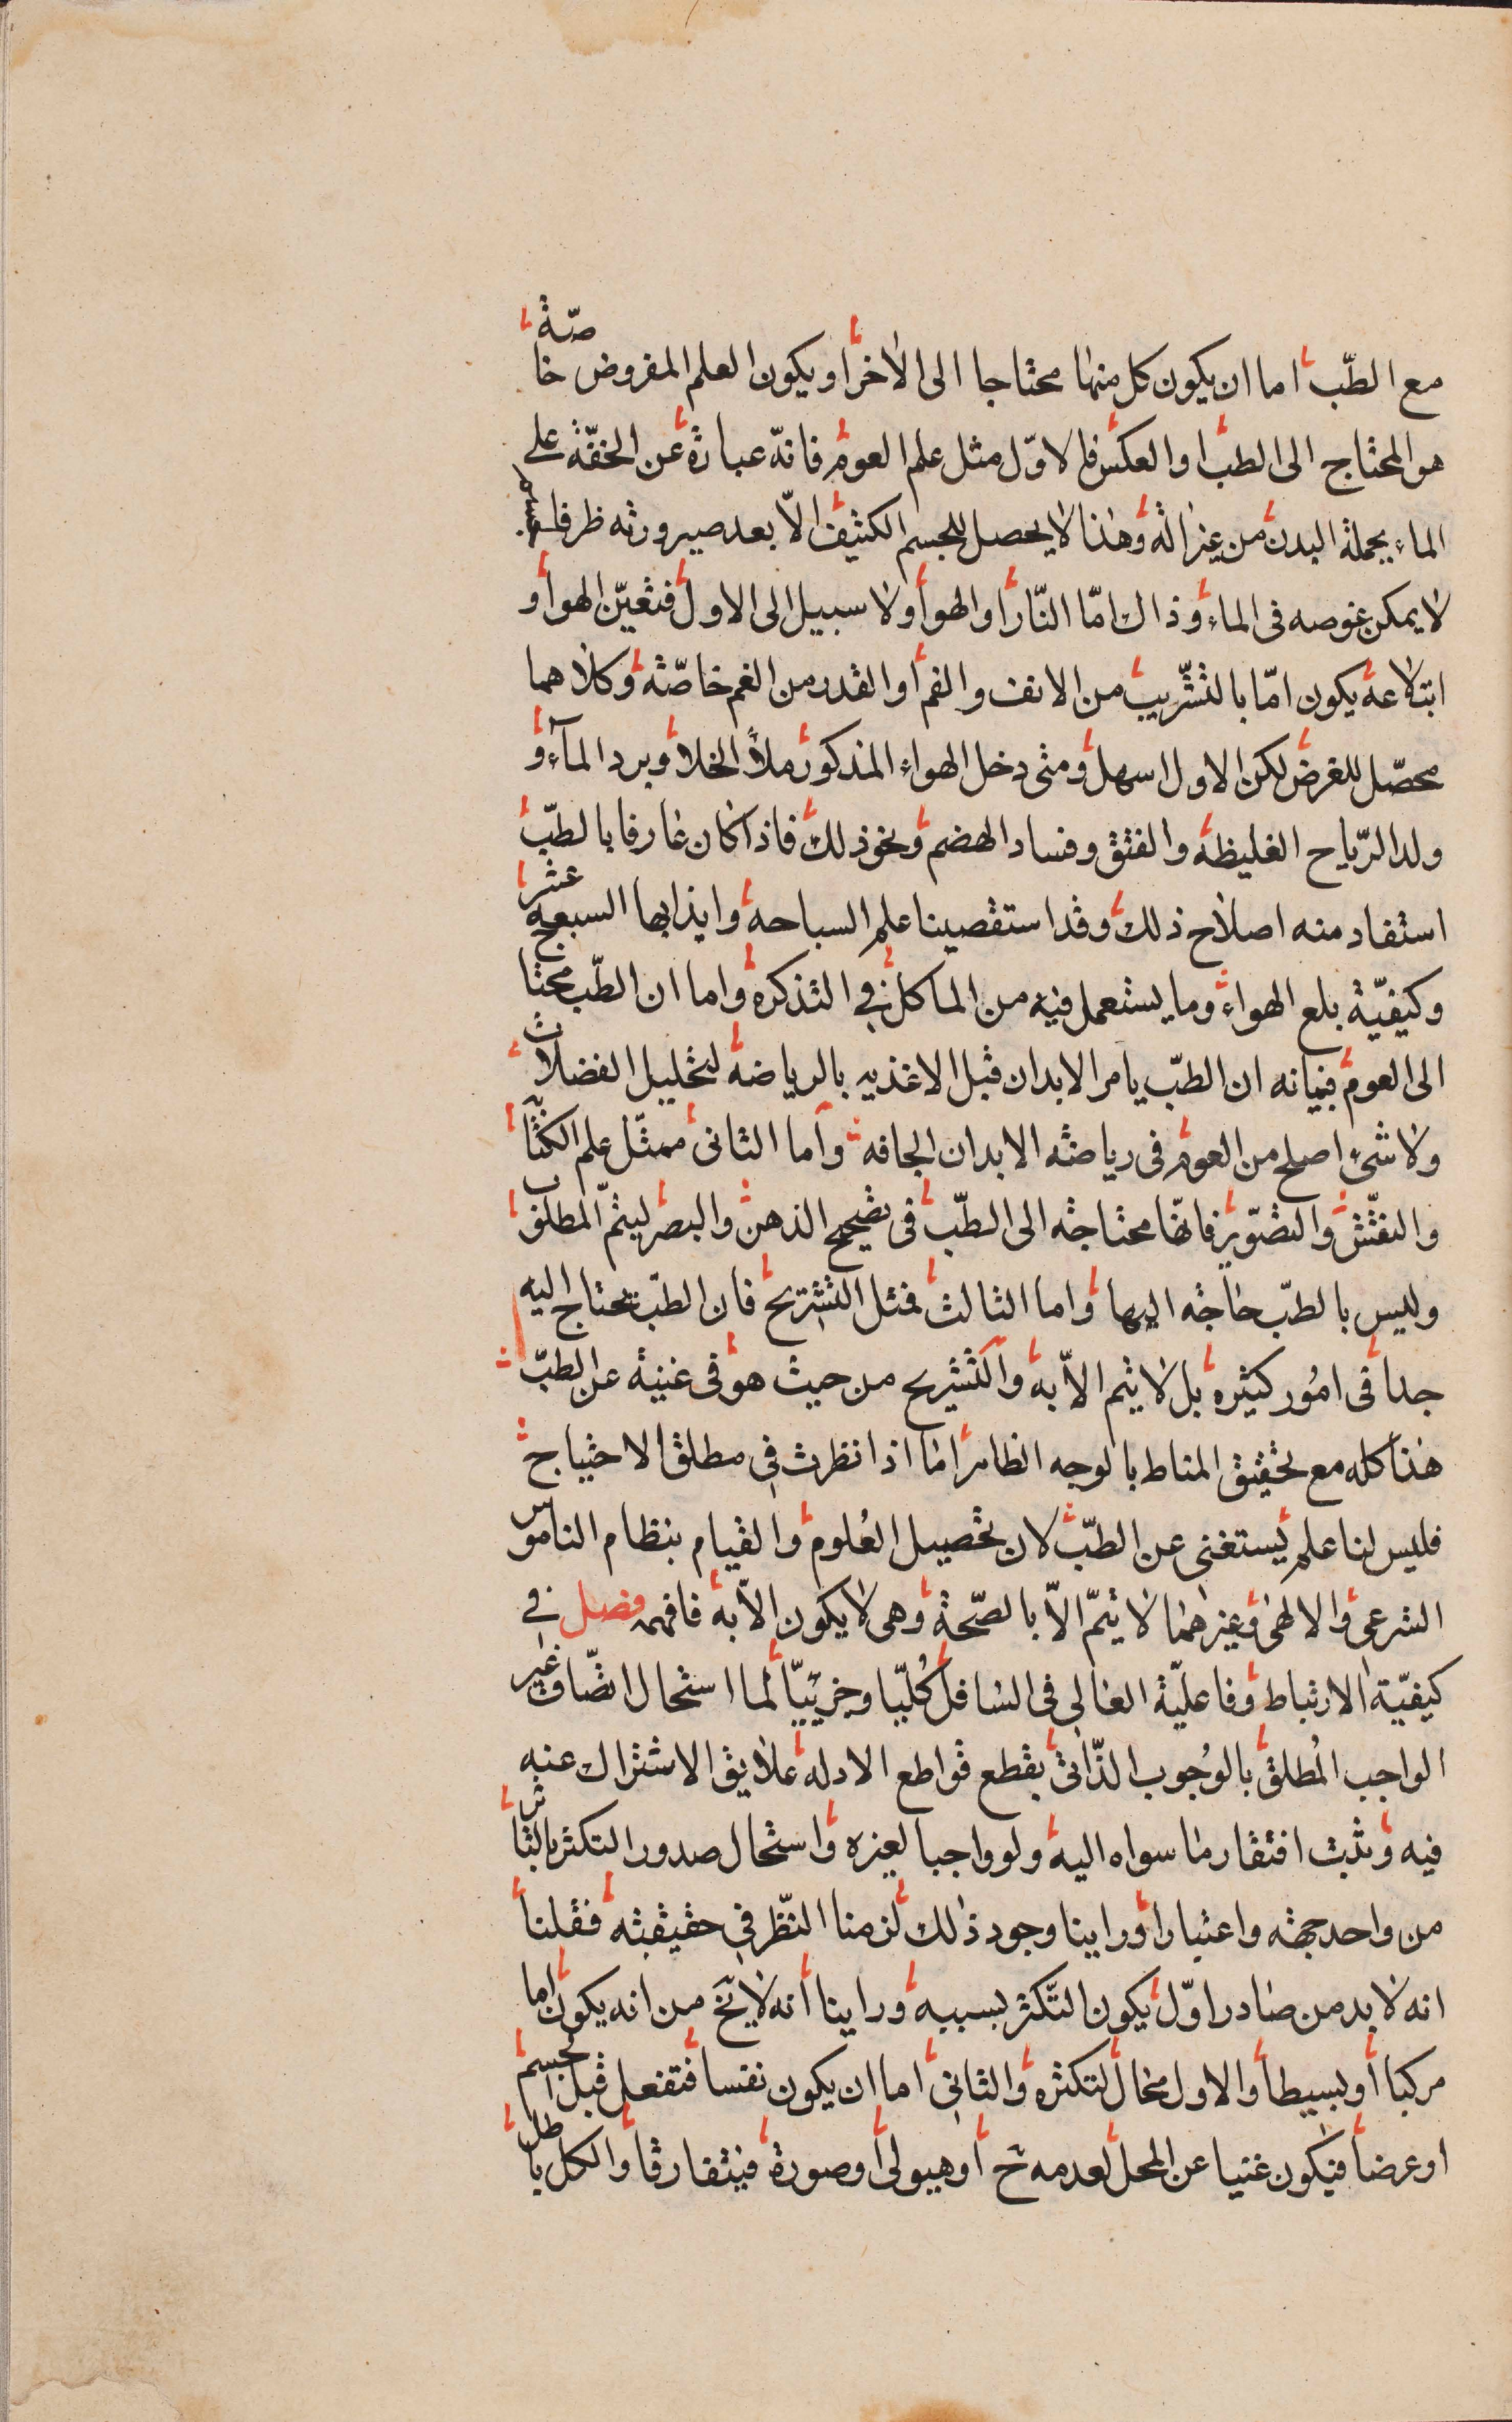 مع الطبّ اما ان يكون كل منهما محتاجا الى الاخر او يكون العلم المفروض خاصّة
هو المحتاج الى الطبّ او العكس فالاوّل مثل علم العوم فانّه عبارة عن الخفّة على
الماء بجملة البدن من غير آلة وهذا لا يحصل للجسم الكثيف الّا بعد صيرورته ظرفا لجسم
لا يمكن غوصه فى الماء وذاك امّا النّار او الهوا ولا سبيل الى الاول فتعيّن الهوا و
ابتلاعه يكون امّا بالتشّريب من الانف والفم او القدر من الفم خاصّة وكلاهما
محصّل للغرض لكن الاول اسهل ومتى دخل الهواء المذكور ملأ الخلا وبرد المآء و
ولد الرّياح الغليظة والفتق وفساد الهضم ونحو ذلك فاذا كان عارفا بالطبّ
استفاد منه اصلاح ذلك وقد استقصينا علم السباحة وابدابها السبعة عشر
وكيفيّة بلع الهواء وما يستعمل فيه من الماكل في التذكرة واما ان الطبّ محتاج
الى العوم فبيانه ان الطبّ يامر الابدان قبل الاغذيه بالرياضة لتحليل الفضلات
ولا شئ اصلح من العوم فى رياضة الابدان الجافه واما الثانى ممثّل علم الكتاب
والنقّش والتصّوير فانّها محتاجة الى الطبّ فى تصحيح الذهن والبصر ليتمّ المطلق
وليس بالطبّ حاجة اليها واما الثالث فمثل التشريح فان الطبّ يحتاج اليه
جدا فى امُور كثيره بل لا يتم الاّ به والتشريح من حيث هو فى غنية عن الطبّ
هذا كله مع تحقيق المناط بالوجه الظاهر اما اذا نظرت في مطلق الاحتياج
فليس لنا علم يستغنى عن الطبّ لان تحصيل العُلوم والقيام بنظام الناموس
الشرعى والالهى وغيرهما لا يتمّ الاّ بالصّحة وهى لا يكون الاّ به فافهم فصل في
كيفيّة الارتباط وفاعليّة العالى فى السافل كُليّا وجزييّا لما استحال اتصّاف غير
الواجب المُطلق بالوُجوب الذّاتى بقطع قواطع الادله علايق الاشتراك عنه
فيه وثبت افتقار ما سواه اليه ولو واجبا لغيره واستحال صدور التكثر بالتاثر
من واحد جهة واعتبارا وراينا وجود ذلك لزمنا النّظر في حقيقته فقلنا
انه لا بد من صادر اوّل يكون التّكثر بسببه وراينا أنه لا يخ من انه يكون اما
مركبا أو بسيطا والاول محال لتكثره والثاني اما ان يكون نفسا فتفعل قبل الجسم
او عرضا فيكون غنيا عن المحل لعدمه ح أو هيولى أو صورة فيتفارقا والكل باطل